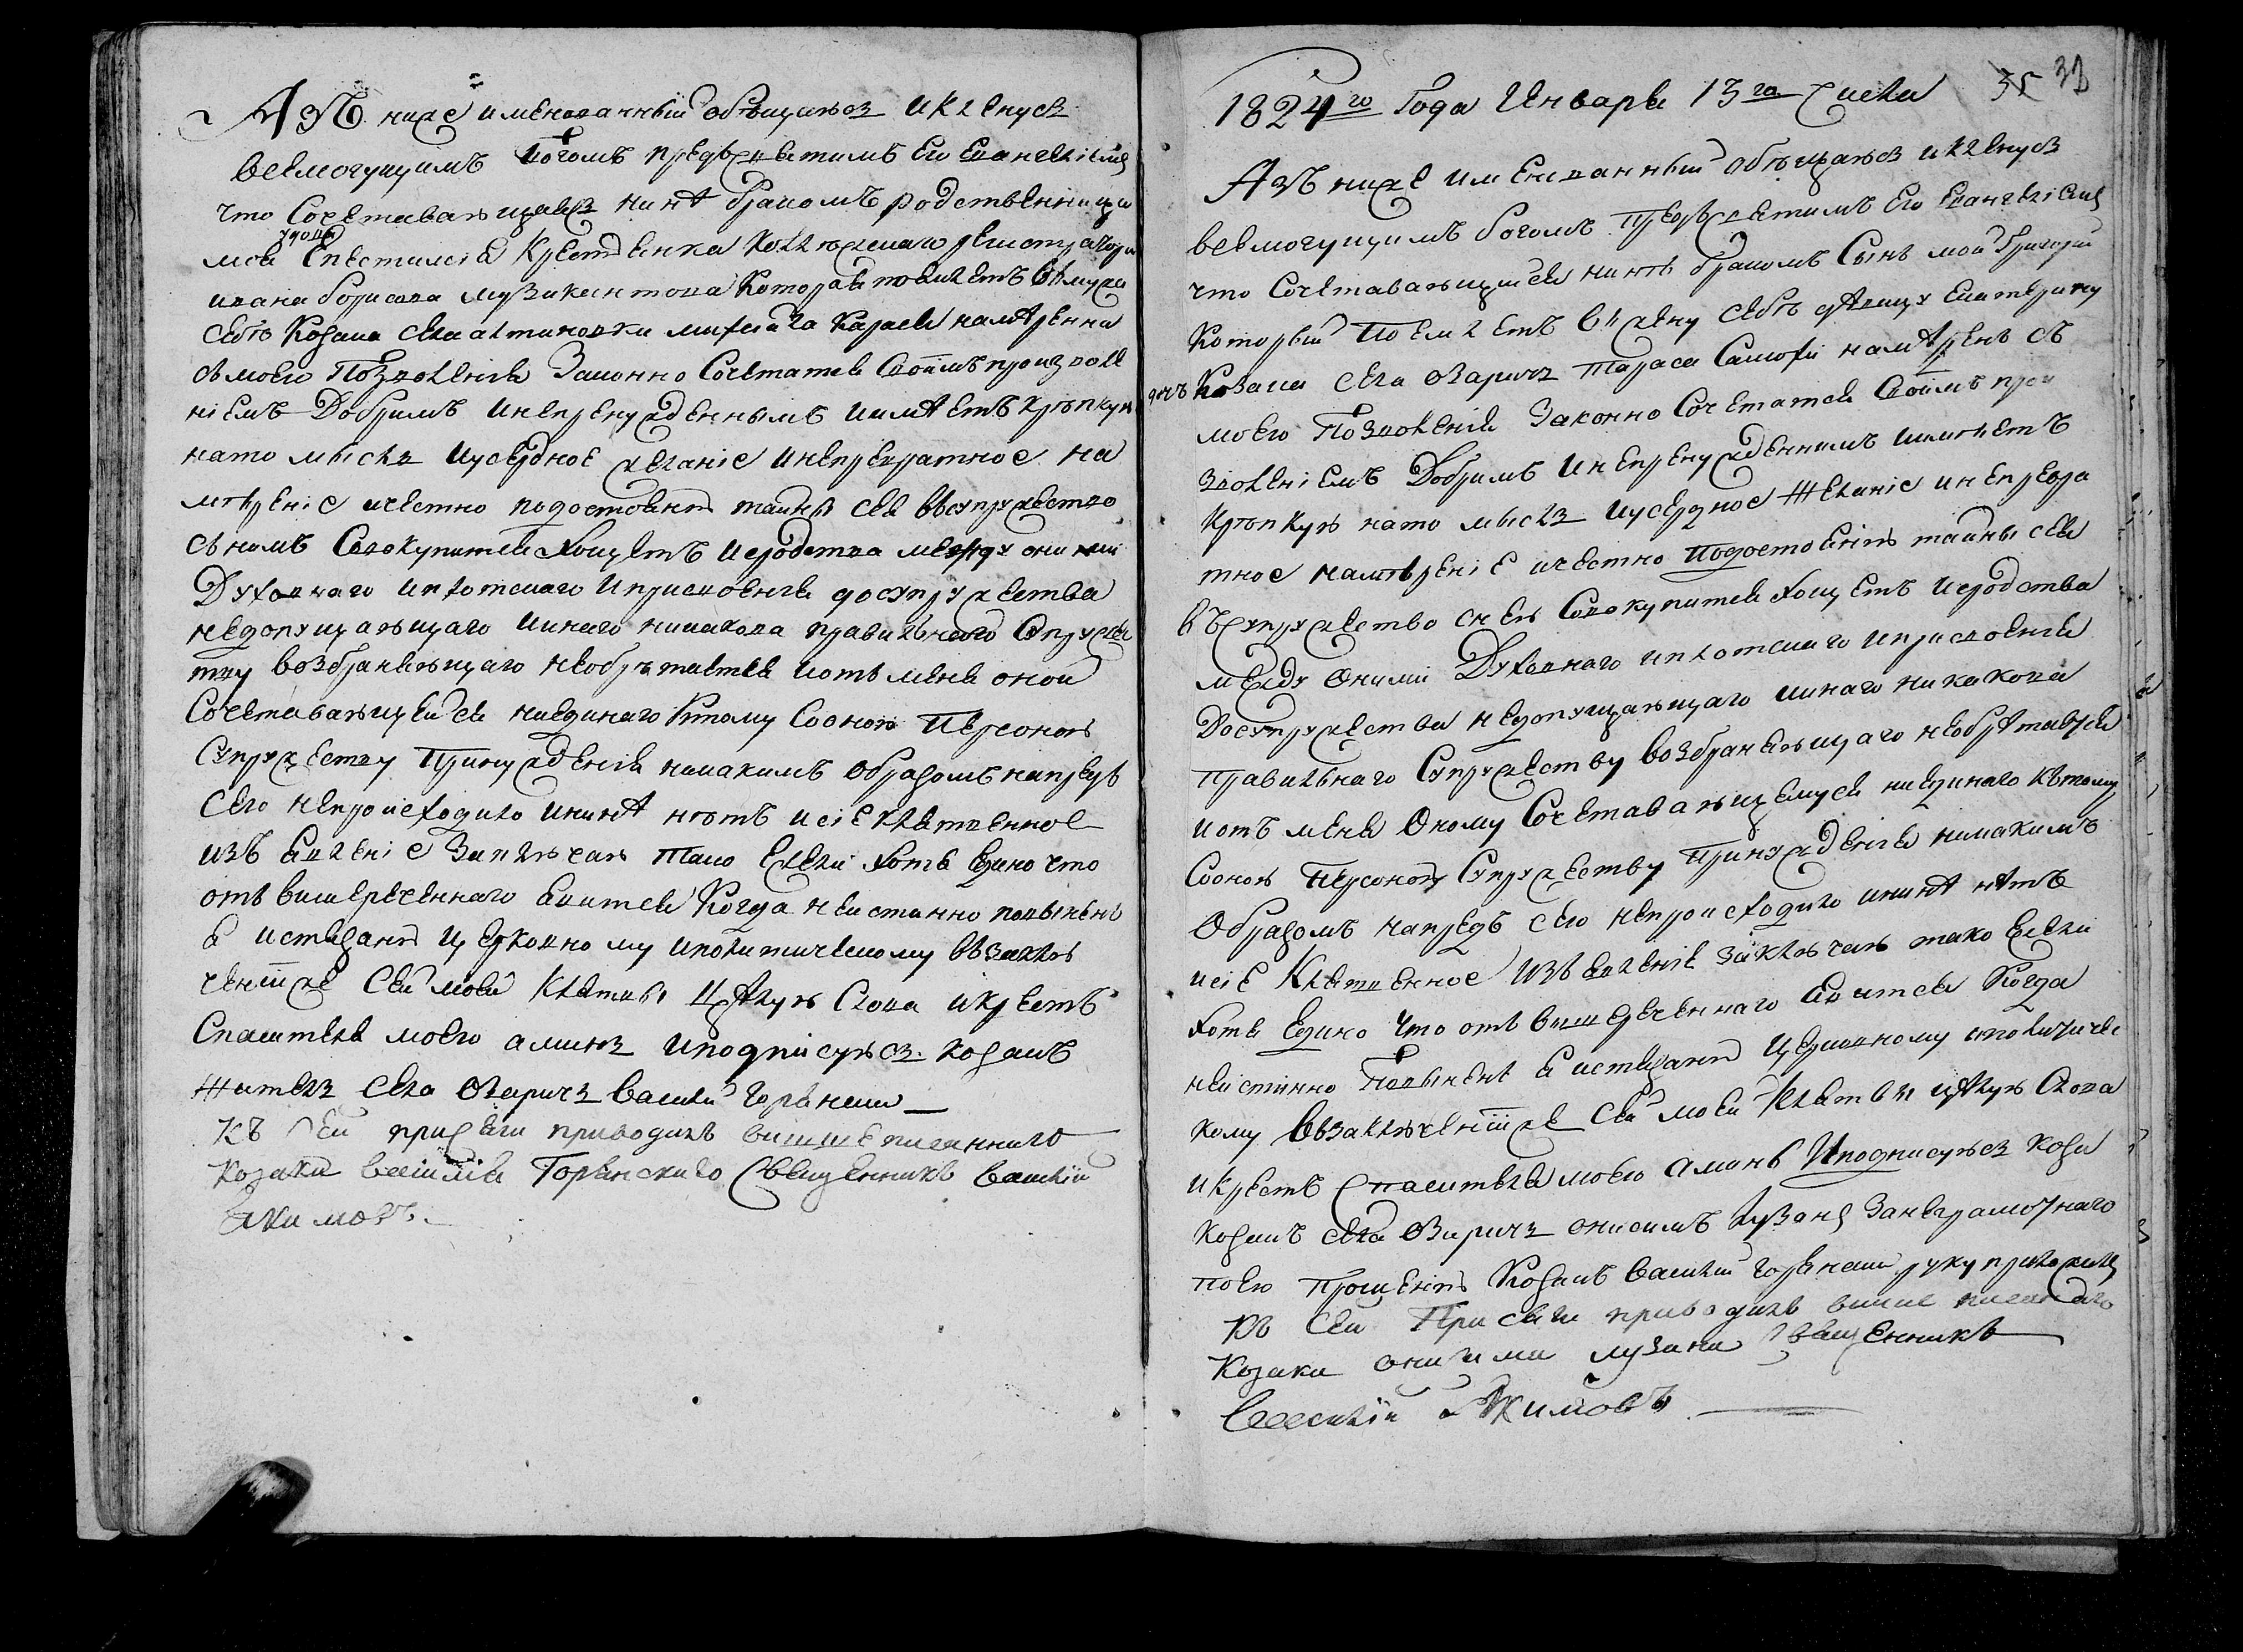 Азъ ниже именованный обѣщаюсь и клянусь
всемогущимъ Богомъ предъ святимъ Его Евангелїемъ
что Сочетавающаяся нинѣ бракомъ родственница
моя Крестянка Колѣжскаго регистратора
ивана борисова музикантова Которая поемлетъ въ мужа
себѣ Козака села алтиновки Карася намѣренна
съ моего Позволенїя Законно Сочетатся Своимъ произволе
нїемъ Добримъ и непренужденнымъ и имѣетъ крѣпкую
на то мысль и усердное желанїе и непревратное на
мѣренїе и честно по достоянїю тайны сея въ супружество
съ нимъ Совокупится хощетъ и сродства между оними
Духовнаго и плотскаго и присвоенїя до супружества
недопущающаго и инаго никакова правильнаго Супруже
тву возбраняющаго необрѣтается и отъ меня оной
Сочетавающейся ни единаго Ктому Со оною Персоною
Супружеству Принужденїя никакимъ образомъ напредъ
сего непроисходило и нинѣ нѣтъ и сїе клятвенное
изъявленїе Заключаю Тако Ежели хотя Едино что
отъ вишереченнаго явится Когда неистинно повиненъ
я истязанїю церковному и политическому въ заклю
ченїи же Сей моей Клятвы Цѣлую Слова и крестъ
Спасителя моего аминь и подписуюсь Козакъ
Житель Села Озаричъ Василий Горянский
Къ Сей присяги приводилъ вишеписаннаго
Козака василия Горянскаго Священникъ василїй
Акимовъ
1824го Года Января 13го Числа 35
Азъ ниже именованный обѣщаюсь и клянусь
всемогущимъ богомъ Предъ святимъ Его Евангелїемъ
что Сочетавающийся нинѣ бракомъ Сынъ мой Григорий
Который Поемлетъ въ жену себѣ дѣвицу Екатерину
дочь Козака села Озаричъ Тараса Самохи намѣренъ съ
моего Позволенїя Законно Сочетатся Своимъ прои
зволенїемъ Добримъ и непренужденнимъ и имѣетъ
Крѣпкую на то мысль и усердное Желанїе и непревра
тное намѣренїе и честно по достоянїю тайны сея
въ супружество с нею Совокупится хощетъ и сродства
между Оними Духовнаго и плотскаго и присвоенїя
До супружества недопущающаго и инаго никакова
Правильнаго Супружеству возбраняющаго необрѣтается
и отъ меня Оному Сочетавающемуся ни единаго къ тому
Со оною Персоною Супружеству Принужденїя никакимъ
Образомъ напредъ сего непроисходило и нинѣ нѣтъ
и сїе Клятвенное изъявленїе заключаю тако Ежели
хотя Едино Что отъ вишереченнаго явится Когда
неистинно Повиненъ я истязанїю церковному и политичес
кому въ заключенїи же Сей моей Клятвы цѣлую Слова
и Крестъ Спасителя моего Аминь И подписуюсь Коза
Козакъ села Озаричъ Онисимъ Лузанъ За неграмотнаго
по его Прошенїю Козакъ Василий Горянский руку приложилъ
Къ Сей Присяги приводилъ више писаннаго
Козака Онисима лузана Священникъ
Василїй Акимовъ